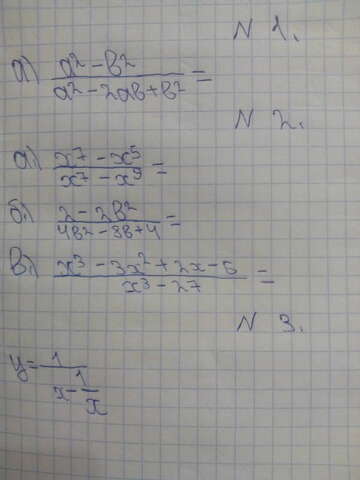 N 1.
а) (a² - b²)/(a² - 2ab + b²) =
N 2.
а) (x⁷ - x⁵)/(x⁷ - x⁹) =
б) (2 - 2b²)/(4b² - 8b + 4) =
в) (x³ - 3x² + 2x - 6)/(x³ - 27) =
N 3.
y = 1/(x - 1/x)